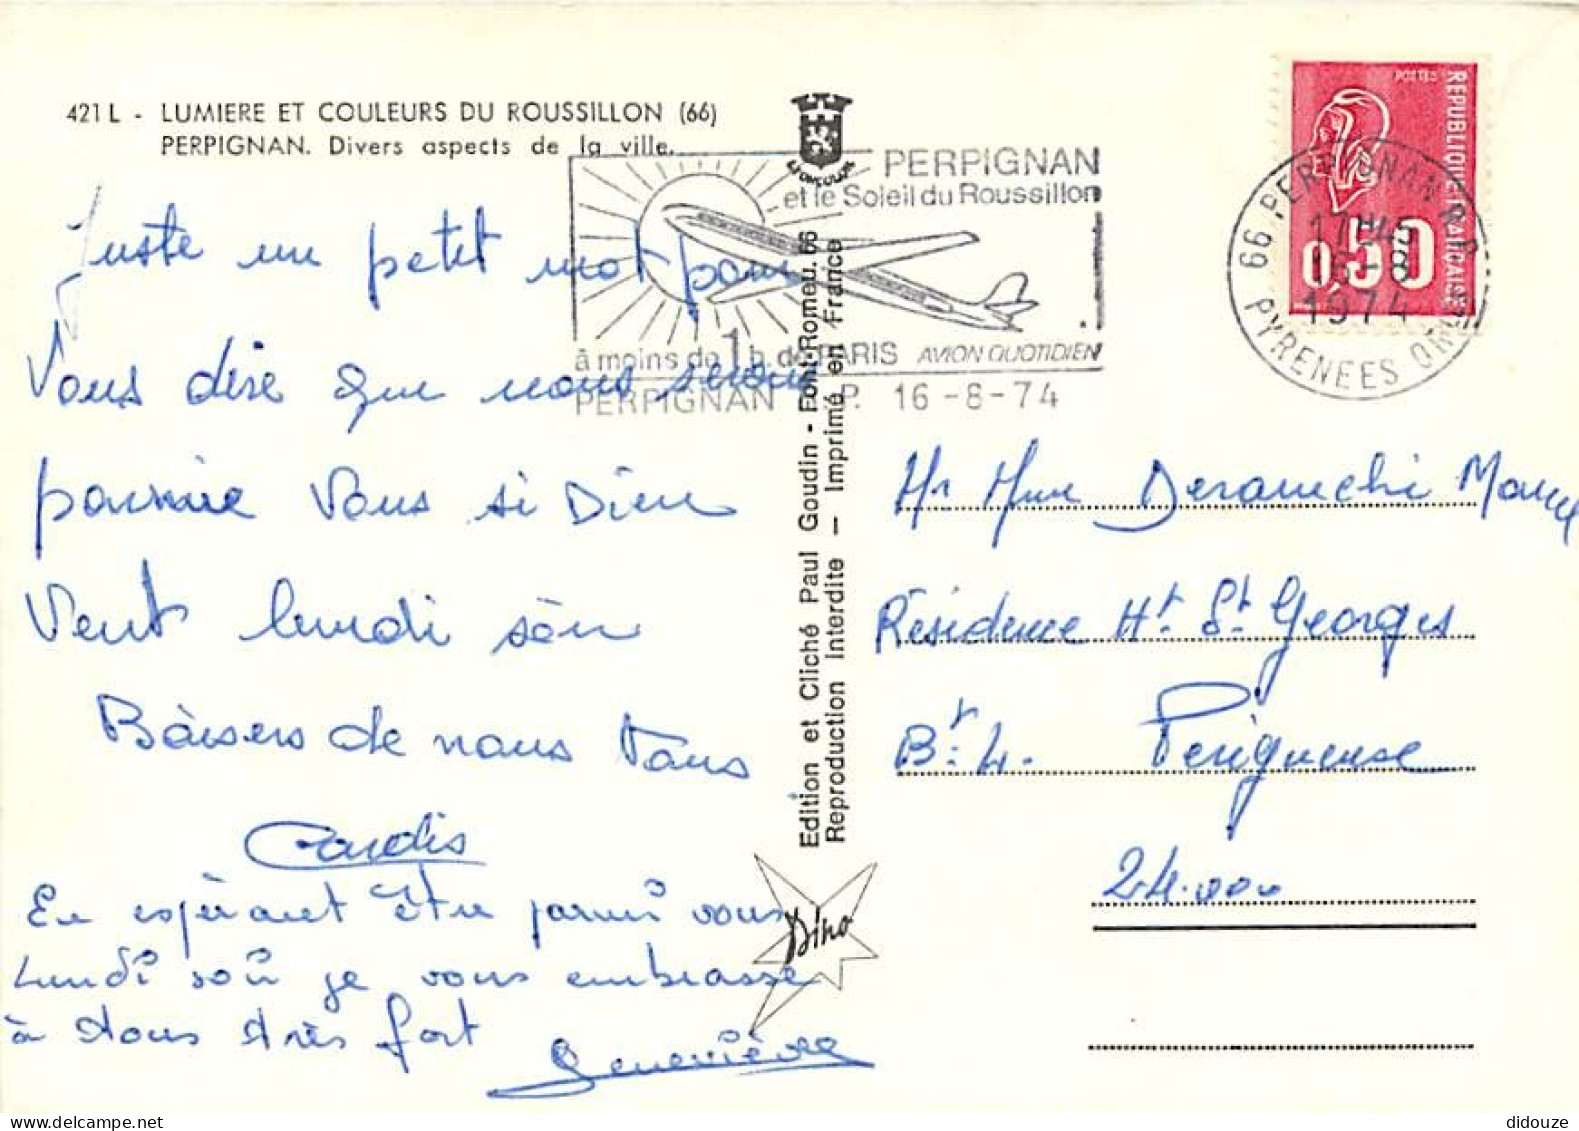 421 L - LUMIERE ET COULEURS DU ROUSSILLON (66)
PERPIGNAN. Divers aspects de la ville.
PERPIGNAN
et le Soleil du Roussillon
à moins de 1h. de PARIS AVION QUOTIDIEN
PERPIGNAN R.P. 16-8-74
REPUBLIQUE FRANCAISE
POSTES
0,50
66 PERPIGNAN R.P.
17H45
16-8
1974
PYRENEES ORIENTALES
Juste un petit mot pour
Vous dire que nous serons
parmie Vous si Dieu
Veut lundi soir
Baisers de nous Tous
En espèrant être parmi vous
Lundi soir je vous embrasse
à tous très fort
Geneviève
Edition et Cliché Paul Goudin - Font-Romeu. 66
Reproduction Interdite — Imprimé en France
Dino
Mr Mme Deramchi Marcel
Résidence Ht. St. Georges
Bt. 4. Perigueuse
24.000
didouze